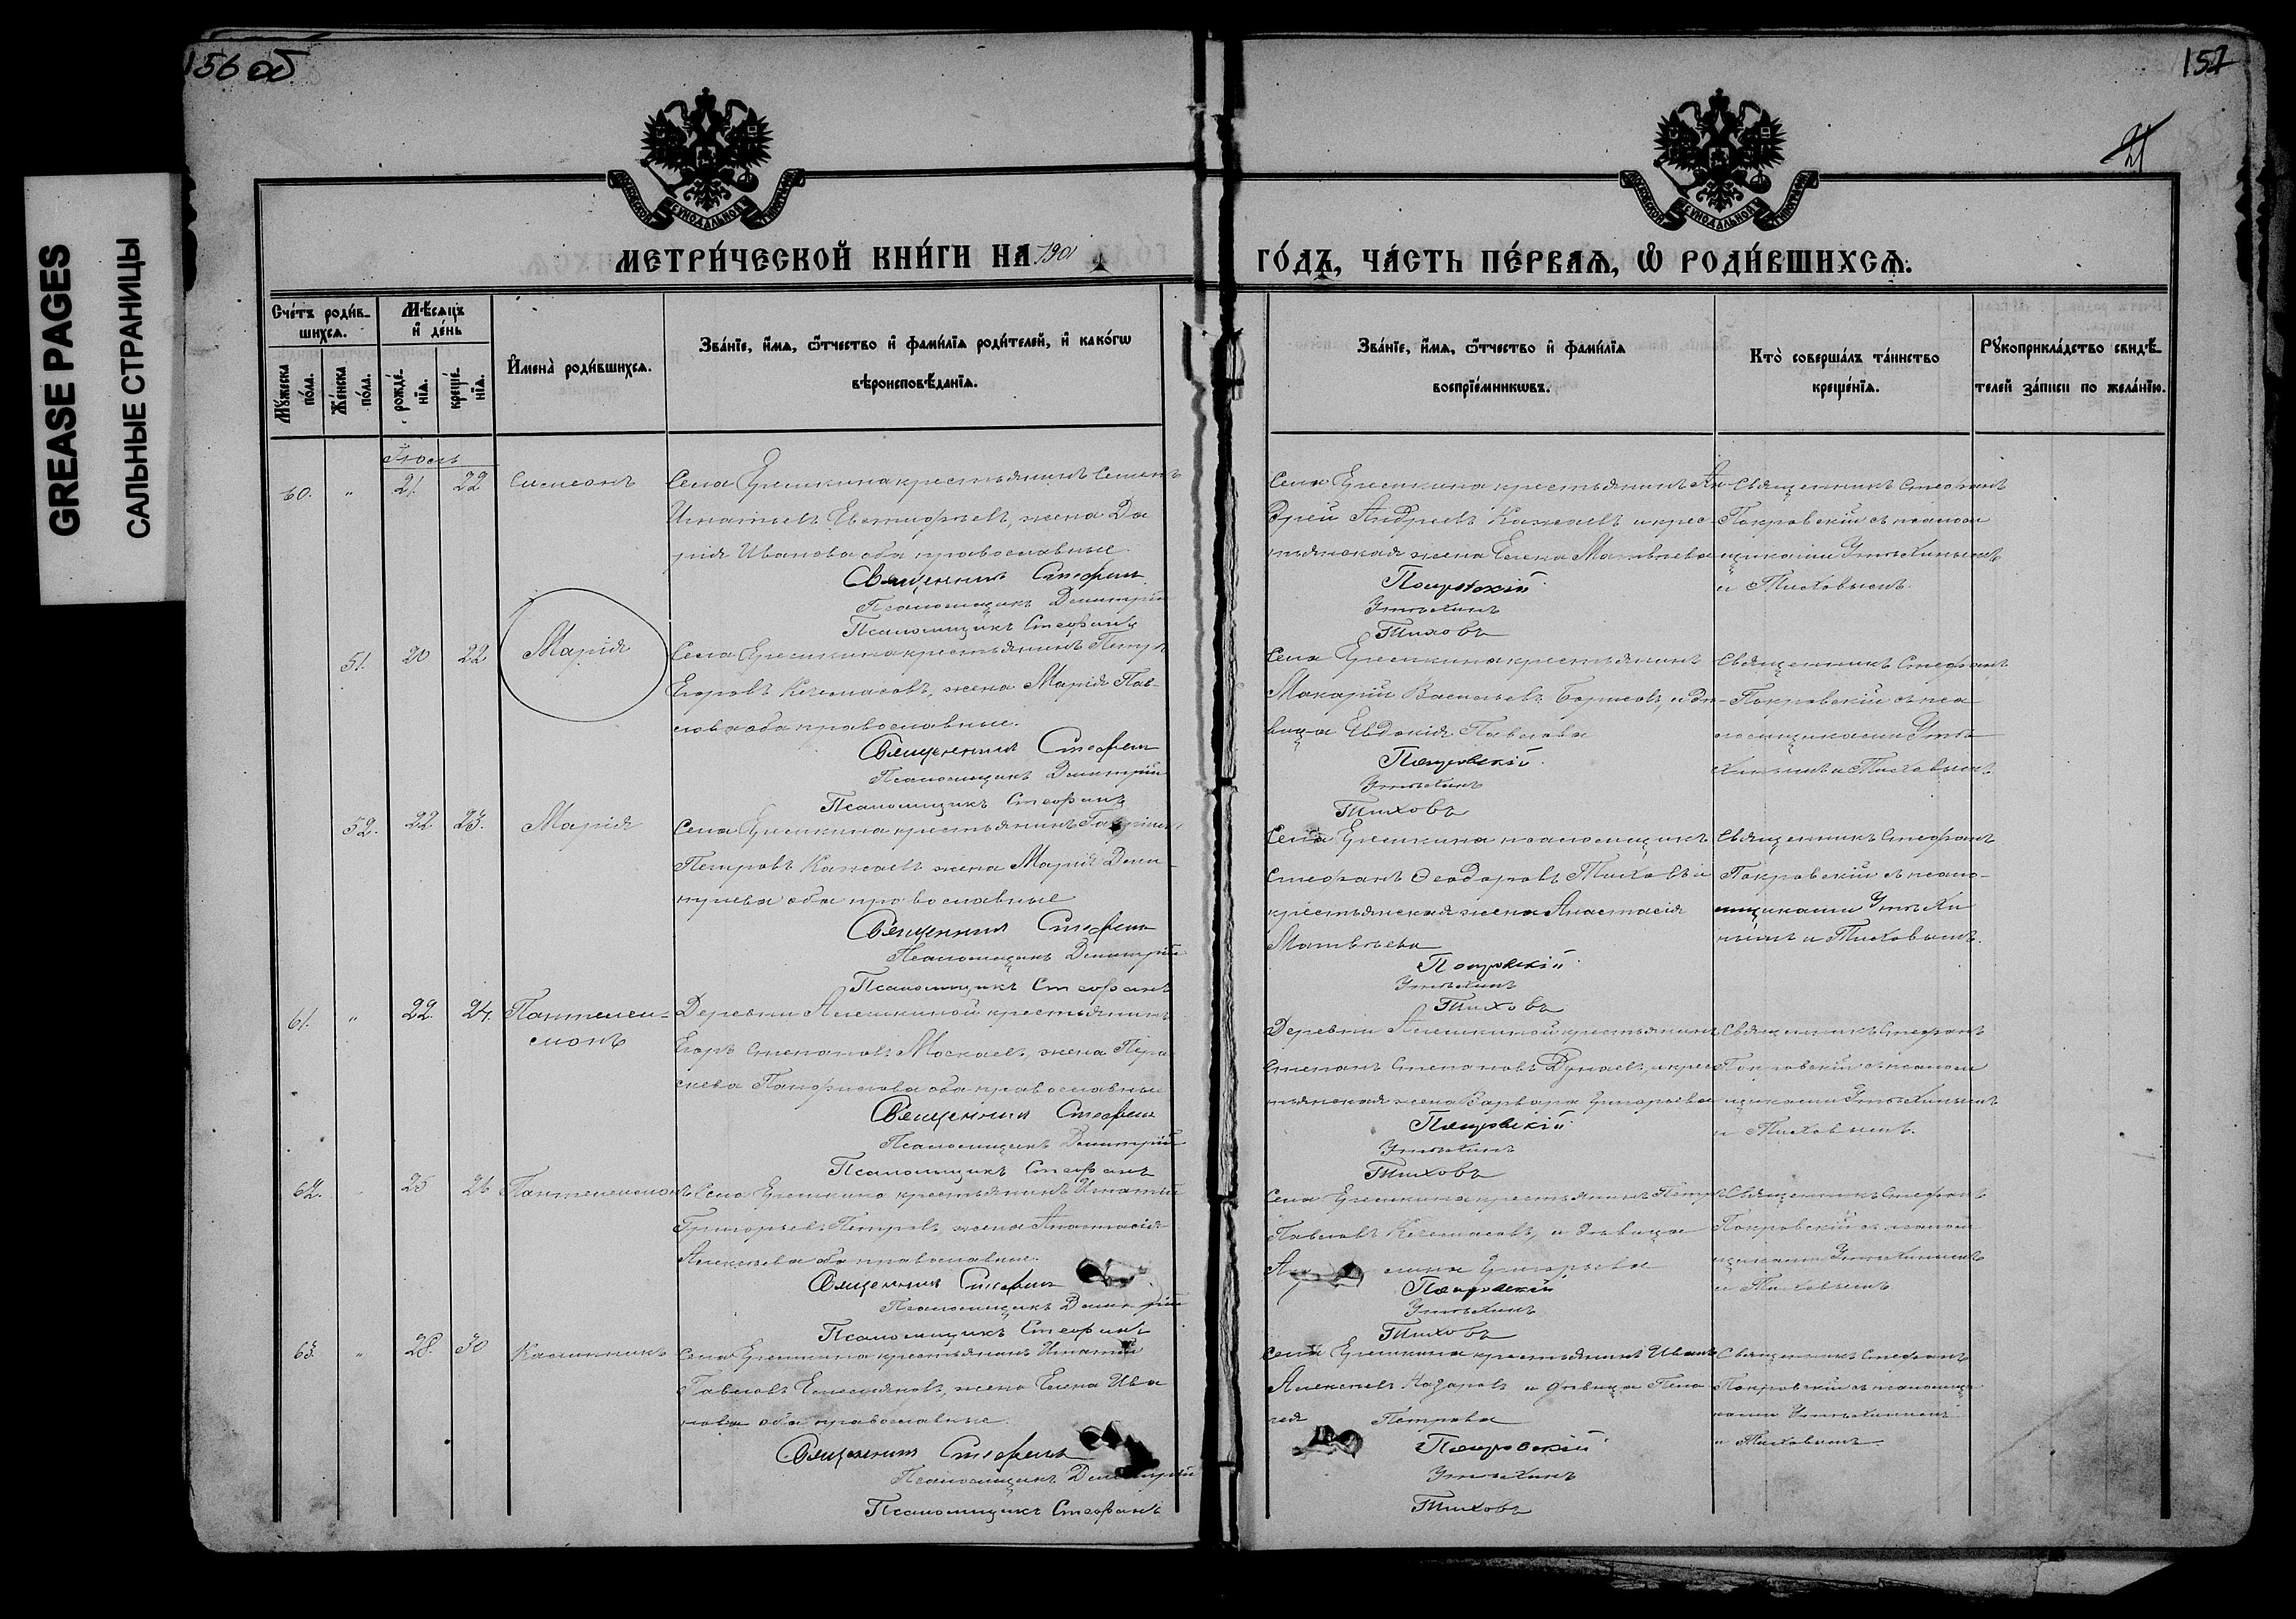 156 об
157
21
GREASE PAGES
САЛЬНЫЕ СТРАНИЦЫ
МОСКОВСКОЙ СѴНОДАЛЬНОЙ ТИПОГРАФІИ
МОСКОВСКОЙ СѴНОДАЛЬНОЙ ТИПОГРАФІИ
МЕТРИ́ЧЕСКОЙ КНИ́ГИ НА 1901
ГО́ДЪ, ЧА́СТЬ ПЕ́РВАѦ, Ѡ РОДИ́ВШИХСѦ.
Сче́тъ роди́в-
шихсѧ.
Мꙋжеска
по́ла.
Же́нска
по́ла.
Мѣ́сѧцъ
и҆ де́нь
рожде́-
нїѧ.
креще́-
нїѧ.
И҆мена̀ роди́вшихсѧ.
Зва́нїе, и҆́мѧ, ѻ҆́тчество и҆ фами́лїѧ роди́телей, и҆ како́гѡ
вѣроисповѣ́данїѧ.
Зва́нїе, и҆́мѧ, ѻ҆́тчество и҆ фами́лїѧ
воспрїе́мникѡвъ.
Кто̀ соверша́лъ та́инство
креще́нїѧ.
Рꙋкоприкла́дство свидѣ́-
телей за́писи по жела́нїю.
Іюль
60. " 21. 22 Симеонъ
Села Ерешкина крестьянинъ Семенъ
Игнатьевъ Евтифѣевъ, жена Да
рія Иванова оба православные.
Священникъ Стефанъ
Псаломщикъ Димитрій
Псаломщикъ Стефанъ
Села Ерешкина крестьянинъ Ан-
дрей Андреевъ Кажаевъ и крес-
тьянская жена Елена Матвѣева
Покровскій
Утѣхинъ
Тиховъ
Священникъ Стефанъ
Покровскій съ псалом
щиками Утѣхинымъ
и Тиховымъ.
51. 20 22 Марія
Села Ерешкина крестьянинъ Петръ
Егоровъ Кечемасовъ, жена Марія Пав-
лова оба православные.
Священникъ Стефанъ
Псаломщикъ Димитрій
Псаломщикъ Стефанъ
Села Ерешкина крестьянинъ
Макарій Васильевъ Борисовъ, и дѣ-
вица Евдокія Павлова
Покровскій
Утѣхинъ
Тиховъ
Священникъ Стефанъ
Покровскій съ пса
ломщиками Утѣ
хинымъ и Тиховымъ.
52. 22 23. Марія
Села Ерешкина крестьянинъ Гавріилъ
Петровъ Кажаевъ жена Марія Дими-
тріева оба православные
Священникъ Стефанъ
Псаломщикъ Димитрій
Псаломщикъ Стефанъ
Села Ерешкина псаломщикъ
Стефанъ Ѳеодоровъ Тиховъ и
крестьянская жена Анастасія
Матвѣева
Покровскій
Утѣхинъ
Тиховъ
Священникъ Стефанъ
Покровскій съ псало-
мщиками Утѣхи
нымъ и Тиховымъ.
61. " 22. 24. Пантелеи-
монъ
Деревни Алешкиной крестьянинъ
Егоръ Степановъ Москаевъ, жена Пара
скева Панфилова оба православные
Священникъ Стефанъ
Псаломщикъ Димитрій
Псаломщикъ Стефанъ
Деревни Алешкиной крестьянинъ
Степанъ Степановъ Дунаевъ, и крес
тьянская жена Варвара Григорьева
Покровскій
Утѣхинъ
Тиховъ
Священникъ Стефанъ
Покровскій съ псалом
щиками Утѣхинымъ
и Тиховымъ.
62. " 25 26 Пантелеимонъ
Села Ерешкина крестьянинъ Игнатій
Григорьевъ Петровъ, жена Анастасія
Алексѣева оба православные.
Священникъ Стефанъ
Псаломщикъ Димитрій
Псаломщикъ Стефанъ
Села Ерешкина крестьянинъ Петръ
Павловъ Кечемасовъ, и дѣвица
Григорьева
Покровскій
Утѣхинъ
Тиховъ
Священникъ Стефанъ
Покровскій съ псалом
щиками Утѣхинымъ
и Тиховымъ
63. " 28. 30 Каллиникъ
Села Ерешкина крестьянинъ Игнатій
Павловъ Емельяновъ, жена Елена Ива
нова оба православные.
Священникъ Стефанъ
Псаломщикъ Димитрій
Псаломщикъ Стефанъ
Села Ерешкина крестьянинъ Иванъ
Алексѣевъ Назаровъ и дѣвица Пела
гея Петрова
Покровскій
Утѣхинъ
Тиховъ
Священникъ Стефанъ
Покровскій съ псаломщи
ками Утѣхинымъ
и Тиховымъ.